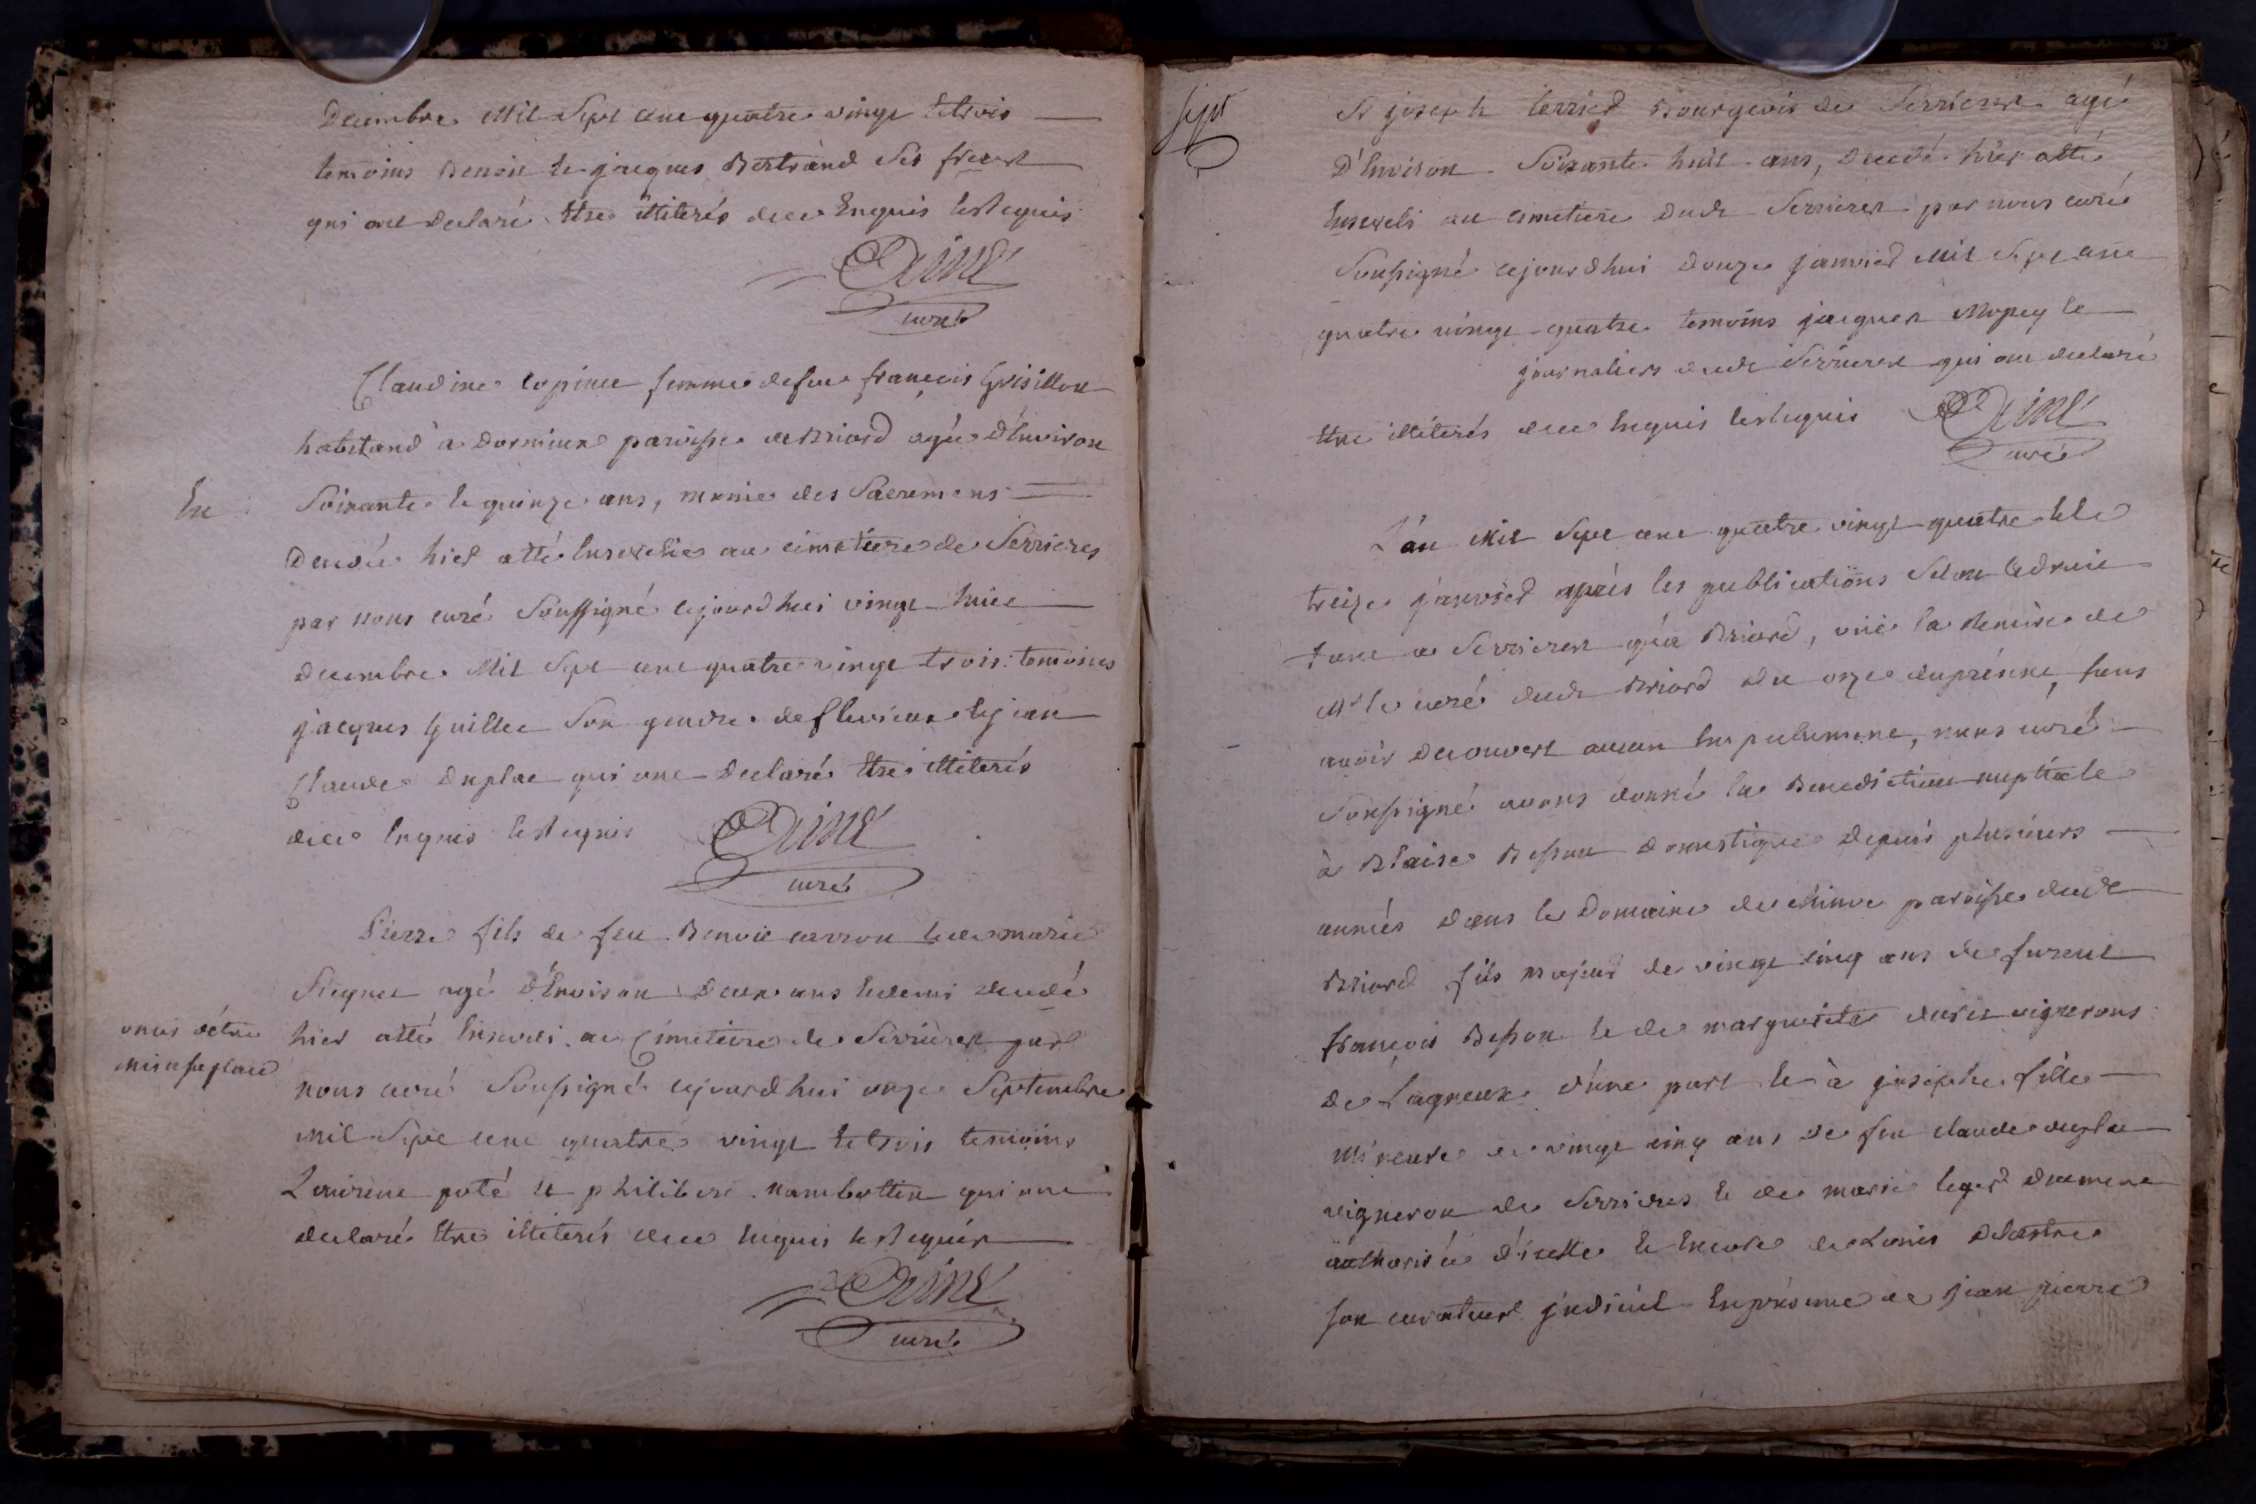 Decembre Mil Sept cent quatre vingt et trois
temoins Benoit et jacques Bertrand Ses freres
qui ont declaré Etre illiterés de ce Enquis et Requis
curé
Claudine femme de feu françois Grisillon
habitand a Dornieux paroisse de Briord agée d'Environ
Soixante et quinze ans, munie des Sacremens
Decedée hier a été Ensevelie au cimetiere de Serrieres
par nous curé Soussigné cejourdhui vingt huit
Decembre Mil Sept cent quatre vingt trois temoins
jacques Guillet Son gendre de flevieux et jean
Claude Duplat qui ont Declaré Etre illiterés
de ce Enquis et Requis
curé
Pierre fils de feu Benoit carron et de marie
agé d'Environ Deux ans et demi decedé
omis d'étre
mis a sa place
hier a été Enseveli au Cimetiere de Serrieres par
nous curé Soussigné cejourdhui onze Septembre
mil Sept cent quatre vingt et trois temoins
et philibert qui ont
declaré Etre illiterés de ce Enquis et Requis
curé
Sept
Sr joseph terrier Bourgeois de Serrieres agé
D'Environ Soixante huit ans, Decedé hier a été
Enseveli au cimetiere dudt Serrieres par nous curé
Soussigné cejourdhui douze janvier Mil Sept cent
quatre vingt quatre temoins jacques et
journaliers dudt Serrieres qui ont declaré
Etre illiterés de ce Enquis et Requis
curé
L'an Mil Sept cent quatre vingt quatre et le
treize janvier après les publications Selon le droit
tant a Serrieres qu'a Briord, vüe la Remise de
Mr le curé dudt Briord du onze du présent, sans
avoir decouvert aucun Empechement, nous curé
Soussigné avons donné la Benediction nuptiale
à Blaise Besson Domestique depuis plusieurs
années dans le Domaine de paroisse dudt
Briord fils majeur de vingt cinq ans de furent
françois Besson et de marguerite vignerons
De Lagneux d'une part et à josephe fille
Mineure de vingt cinq ans de feu claude duplat
vigneron de Serrieres et de marie leger
authorisée d'icelle et Encore de Louis Delastre
son curateur judiciel En présence de jean pierre